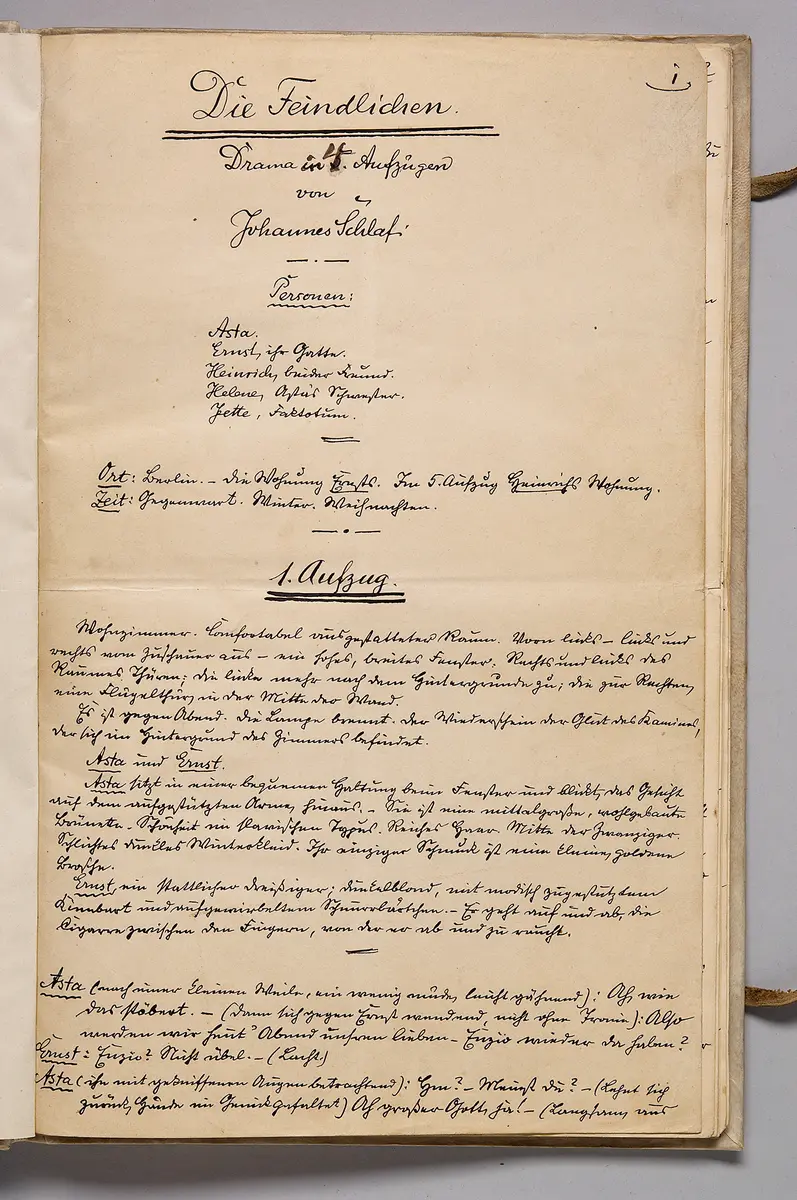 1
Die Feindlichen.
Drama in 4. Aufzügen
von
Johannes Schlaf.
Personen:
Asta.
Ernst, ihr Gatte.
Heinrich, beider Freund.
Helene, Asta's Schwester.
Jette, Faktotum.
Ort: Berlin. – Die Wohnung Ernsts. Im 5. Aufzug Heinrichs Wohnung.
Zeit: Gegenwart. Winter. Weihnachten.
1. Aufzug.
Wohnzimmer. Comfortabel ausgestatteter Raum. Vorn links – links und
rechts vom Zuschauer aus – ein hohes, breites Fenster. Rechts und links des
Raumes Thüren; die linke mehr nach dem Hintergrunde zu; die zur Rechten,
eine Flügelthür, in der Mitte der Wand.
Es ist gegen Abend. Die Lampe brennt. Der Wiederschein der Glut des Kamines,
der sich im Hintergrund des Zimmers befindet.
Asta und Ernst.
Asta sitzt in einer bequemen Haltung beim Fenster und blickt, das Gesicht
auf dem aufgestützten Arme, hinaus. – Sie ist eine mittelgroße, wohlgebaute
Brünette. Schönheit im slavischen Typus. Reiches Haar. Mitte der Zwanziger.
Schlichtes dunkles Winterkleid. Ihr einziger Schmuck ist eine kleine, goldene
Brosche.
Ernst, ein stattlicher Dreißiger; dunkelblond, mit modisch zugestutztem
Kinnbart und aufgewirbeltem Schnurrbärtchen. – Er geht auf und ab, die
Cigarre zwischen den Fingern, von der er ab und zu raucht.
Asta (nach einer kleinen Weile, ein wenig müde, leicht gähnend): Ah, wie
das stöbert. – (Dann sich gegen Ernst wendend, nicht ohne Ironie): Also
werden wir heut' Abend unsren lieben – Enzio wieder da haben?
Ernst: Enzio? Nicht übel. – (Lacht)
Asta (ihn mit gekniffenen Augen betrachtend): Hm? – Meinst du? – (Lehnt sich
zurück, Hände im Genick gefaltet) Ah großer Gott, ja! – (Langsam, aus